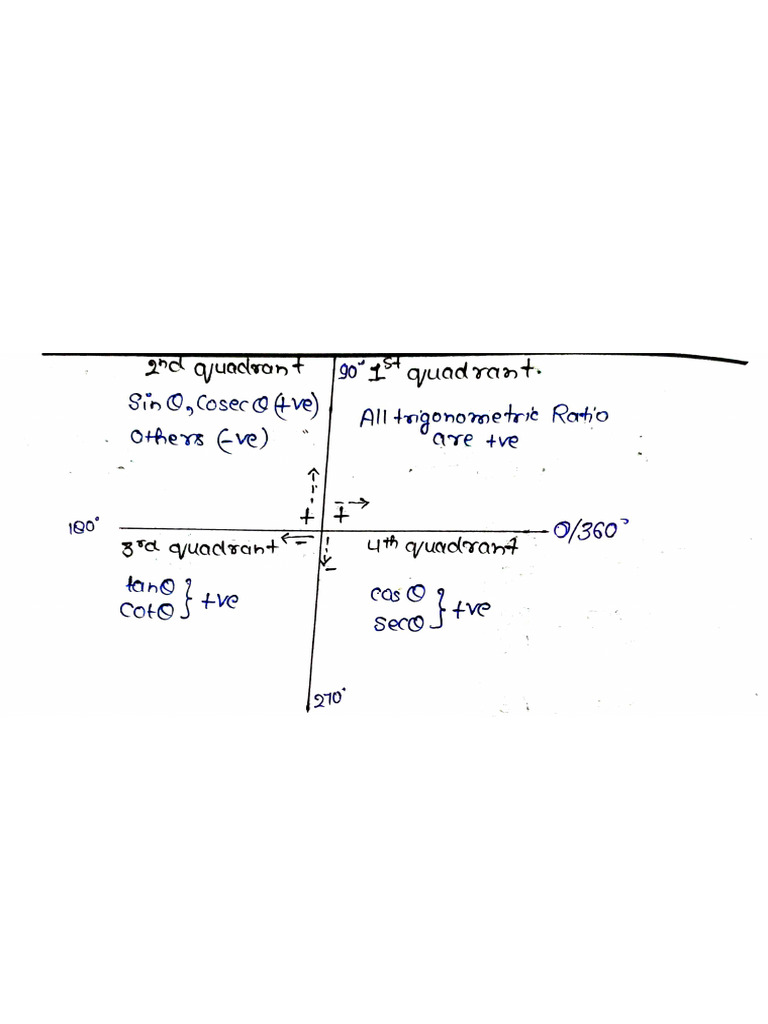 2nd quadrant
90° 1st quadrant.
Sin θ, Cosec θ (+ve)
Others (-ve)
All trigonometric Ratio
are +ve
+ +
180°
0/360°
3rd quadrant -
4th quadrant
-
tanθ
cotθ } +ve
cos θ
secθ } +ve
270°